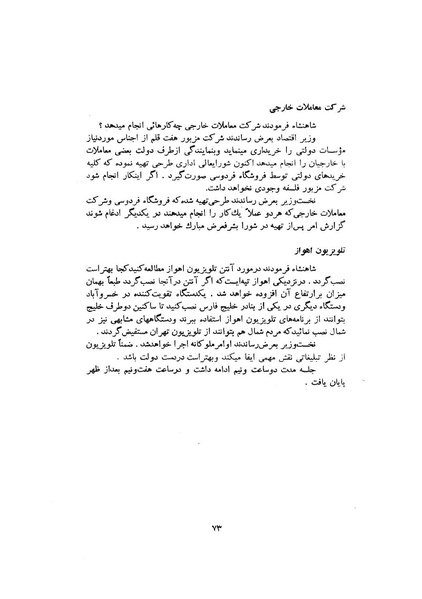 شرکت معاملات خارجی
شاهنشاه فرمودند شرکت معاملات خارجی چه کارهائی انجام میدهد ؟
وزیر اقتصاد بعرض رساندند شرکت مزبور هفت قلم از اجناس موردنیاز
مؤسسات دولتی را خریداری مینماید وبنمایندگی ازطرف دولت بعضی معاملات
با خارجیان را انجام میدهد اکنون شورایعالی اداری طرحی تهیه نموده که کلیه
خریدهای دولتی توسط فروشگاه فردوسی صورت گیرد . اگر اینکار انجام شود
شرکت مزبور فلسفه وجودی نخواهد داشت.
نخست‌وزیر بعرض رساندند طرحی تهیه شده که فروشگاه فردوسی وشرکت
معاملات خارجی که هر دو عملاً یك کار را انجام میدهند در یکدیگر ادغام شوند
گزارش امر پس از تهیه در شورا بشرفعرض مبارك خواهد رسید .
تلویزیون اهواز
شاهنشاه فرمودند درمورد آنتن تلویزیون اهواز مطالعه کنید کجا بهتر است
نصب گردد . درنزدیکی اهواز تپه‌ایست که اگر آنتن درآنجا نصب گردد طبعاً بهمان
میزان برارتفاع آن افزوده خواهد شد . یکدستگاه تقویت‌کننده در خسروآباد
ودستگاه دیگری در یکی از بنادر خلیج فارس نصب کنید تا ساکنین دوطرف خلیج
بتوانند از برنامه‌های تلویزیون اهواز استفاده ببرند ودستگاههای مشابهی نیز در
شمال نصب نمائید که مردم شمال هم بتوانند از تلویزیون تهران مستفیض گردند .
نخست‌وزیر بعرض رساندند اوامر ملوکانه اجرا خواهدشد . ضمناً تلویزیون
از نظر تبلیغاتی نقش مهمی ایفا میکند وبهتراست دردست دولت باشد .
جلسه مدت دوساعت ونیم ادامه داشت و درساعت هفت‌ونیم بعداز ظهر
پایان یافت .
۷۳